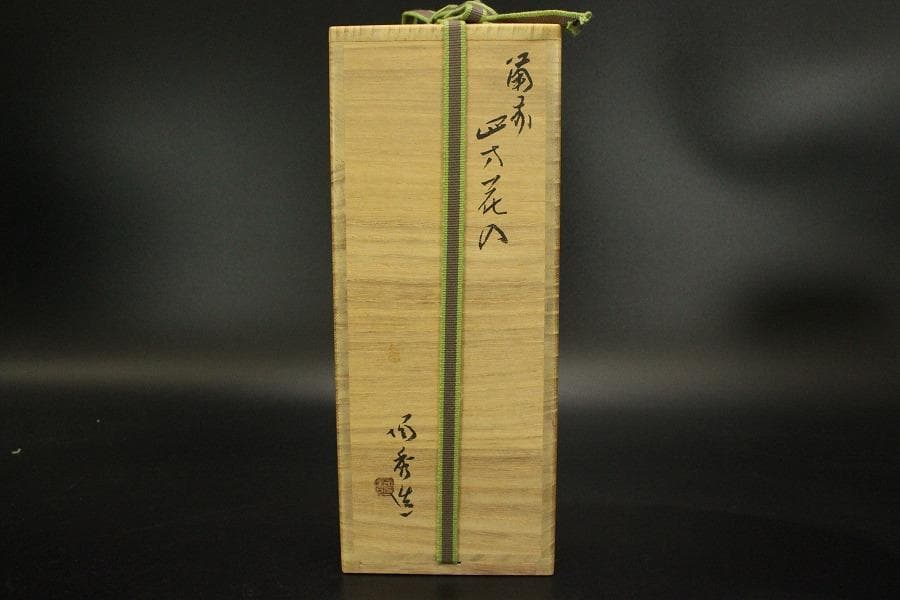 備前
四方花入
陽秀造